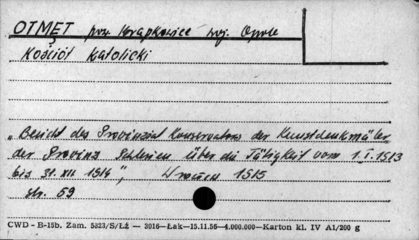 OTMĘT pow. Krapkowice woj. Opole
Kościół katolicki
„Bericht des Provinzial Konservators der Kunstdenkmäler
der Provinz Schlesien über die Tätigkeit vom 1.I.1913
bis 31.XII 1914", Wrocław 1915
str. 59
CWD - B-15b. Zam. 5323/S/Lż — 3016—Łak—15.11.56—4.000.000—Karton kl. IV A1/200 g